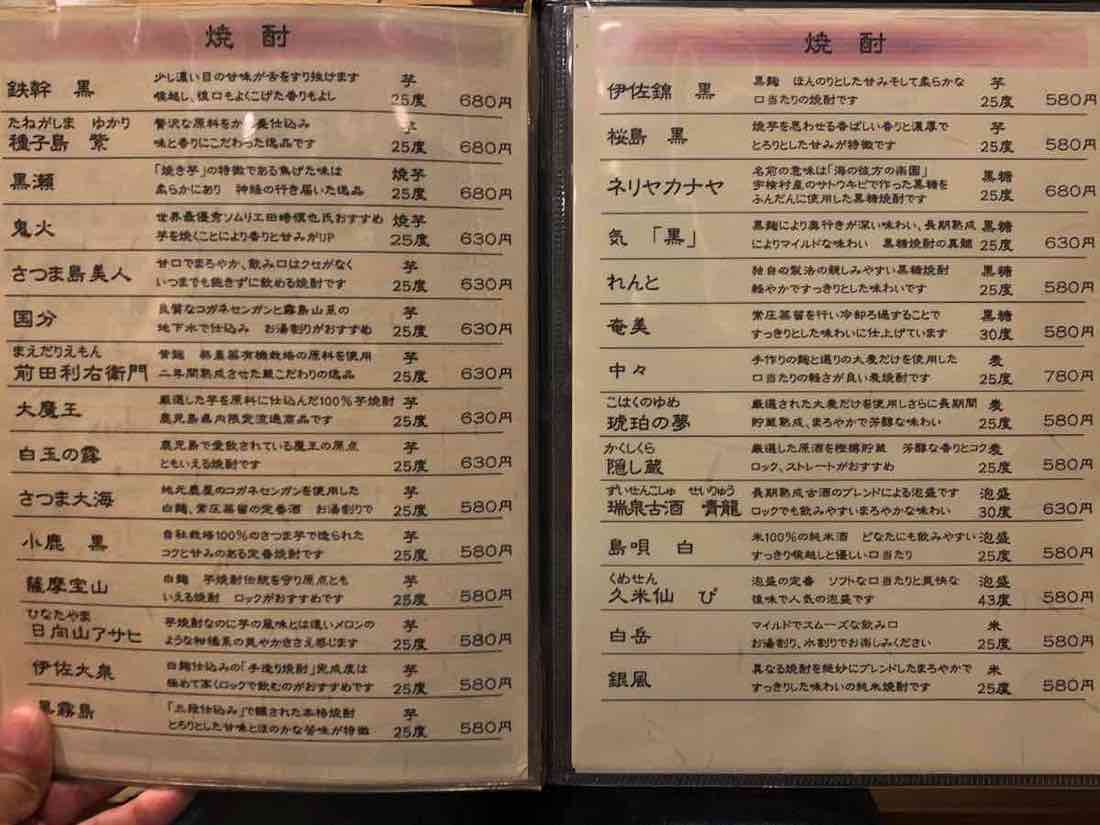 焼酎
鉄幹 黒 少し濃い目の甘味が舌をすり抜けます 芋
喉越し、後口もよくこげた香りもよし 25度 680円
たねがしま ゆかり 贅沢な原料をか 仕込み
種子島 紫 味と香りにこだわった逸品です 25度 680円
黒瀬 「焼き芋」の特徴である焦げた味は 焼芋
柔らかにあり 神経の行き届いた逸品 25度 680円
鬼火 世界最優秀ソムリエ田崎慎也氏おすすめ 焼芋
芋を焼くことにより香りと甘みがUP 25度 630円
さつま島美人 甘口でまろやか、飲み口はクセがなく 芋
いつまでも飽きずに飲める焼酎です 25度 630円
国分 良質なコガネセンガンと霧島山系の 芋
地下水で仕込み お湯割りがおすすめ 25度 630円
まえだりえもん 黄麹 熟農薬有機栽培の原料を使用 芋
前田利右衛門 二年間熟成させた蔵こだわりの逸品 25度 630円
大魔王 厳選した芋を原料に仕込んだ100%芋焼酎 芋
鹿児島県内限定流通商品です 25度 630円
白玉の露 鹿児島で愛飲されている魔王の原点 芋
ともいえる焼酎です 25度 630円
さつま大海 地元鹿屋のコガネセンガンを使用した 芋
白麹、常圧蒸留の定番酒 お湯割りで 25度 580円
小鹿 黒 自社栽培100%のさつま芋で造られた 芋
コクと甘みのある定番焼酎です 25度 580円
薩摩宝山 白麹 芋焼酎伝統を守り原点とも 芋
いえる焼酎 ロックがおすすめです 25度 580円
ひなたやま 芋焼酎なのに芋の風味とは遠いメロンの 芋
日向山アサヒ ような柑橘系の爽やかささえ感じます 25度 580円
伊佐大泉 白麹仕込みの「手造り焼酎」完成度は 芋
極めて高くロックで飲むのがおすすめです 25度 580円
黒霧島 「三段仕込み」で醸された本格焼酎 芋
とろりとした甘味とほのかな苦味が特徴 25度 580円
焼酎
伊佐錦 黒 黒麹 ほんのりとした甘みそして柔らかな 芋
口当たりの焼酎です 25度 580円
桜島 黒 焼芋を思わせる香ばしい香りと濃厚で 芋
とろりとした甘みが特徴です 25度 580円
ネリヤカナヤ 名前の意味は「海の彼方の楽園」 黒糖
宇検村産のサトウキビで作った黒糖を
ふんだんに使用した黒糖焼酎です 25度 680円
気 「黒」 黒麹により奥行きが深い味わい、長期熟成 黒糖
によりマイルドな味わい 黒糖焼酎の真髄 25度 630円
れんと 独自の製法の親しみやすい黒糖焼酎 黒糖
軽やかですっきりとした味わいです 25度 580円
奄美 常圧蒸留を行い冷却ろ過することで 黒糖
すっきりとした味わいに仕上げています 30度 580円
中々 手作りの麹と選りの大麦だけを使用した 麦
口当たりの軽さが良い麦焼酎です 25度 780円
こはくのゆめ 厳選された大麦だけを使用しさらに長期間 麦
琥珀の夢 貯蔵熟成、まろやかで芳醇な味わい 25度 580円
かくしくら 厳選した原酒を樫樽貯蔵 芳醇な香りとコク 麦
隠し蔵 ロック、ストレートがおすすめ 25度 580円
ずいせんこしゅ せいりゅう 長期熟成古酒のブレンドによる泡盛です 泡盛
瑞泉古酒 青龍 ロックでも飲みやすいまろやかな味わい 30度 630円
島唄 白 米100%の純米酒 どなたにも飲みやすい 泡盛
すっきり喉越しと優しい口当たり 25度 580円
くめせん 泡盛の定番 ソフトな口当たりと爽快な 泡盛
久米仙 び 後味で人気の泡盛です 43度 580円
白岳 マイルドでスムーズな飲み口 米
お湯割り、水割りでお楽しみください 25度 580円
銀風 異なる焼酎を絶妙にブレンドしたまろやかで 米
すっきりした味わいの純米焼酎です 25度 580円